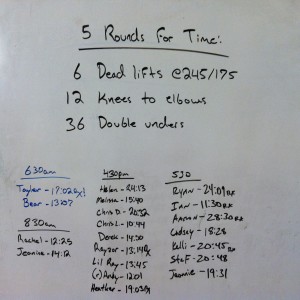 5 Rounds For Time:
6 Dead lifts @245/175
12 Knees to elbows
36 Double unders
630am
Taylor - 17:02 Rx!
Bear - 13:07
830am
Rachel - 12:25
Jeannie - 14:12
430pm
Helen - 24:13
Melissa - 15:40
Chris D - 20:32
Chris L - 10:44
Derek - 14:50
Rayzor - 13:14 Rx
Lil Ray - 13:45
Andy - 12:01
Heather - 19:03
530
Ryan - 24:09 Rx
Ian - 11:30 Rx
Aaron - 28:30 Rx
Lindsey - 18:28
Kelli - 20:45
Staf - 20:48
Jeannie - 19:31